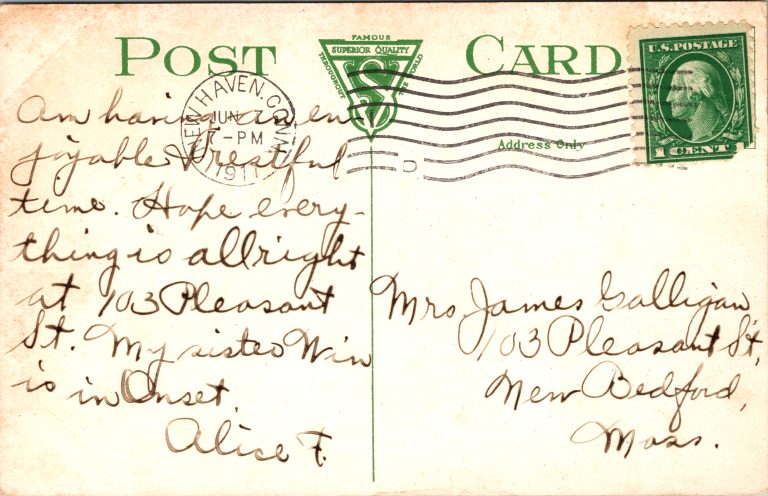 POST CARD
FAMOUS
SUPERIOR QUALITY
THROUGHOUT THE WORLD
U.S. POSTAGE
1 CENT
NEW HAVEN, CONN
JUN
7-PM
1911
D
Address Only
Am having an en-
joyable & restful
time. Hope every-
thing is allright
at 103 Pleasant
St. My sister Win
is in Onset.
Alice F.
Mrs James Galligan,
103 Pleasant St,
New Bedford,
Mass.